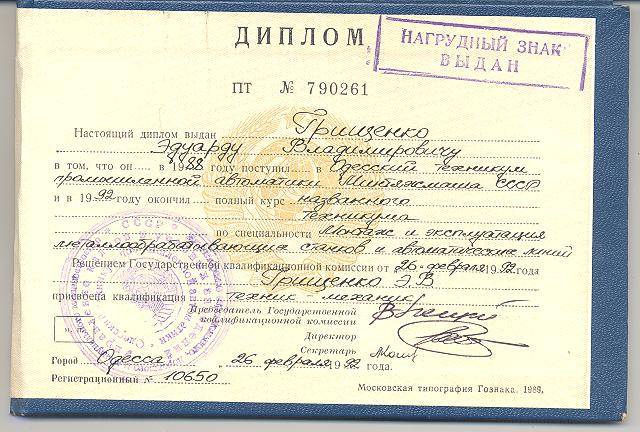 ДИПЛОМ
НАГРУДНЫЙ ЗНАК
ВЫДАН
ПТ № 790261
Настоящий диплом выдан Грищенко
Эдуарду Владимировичу
в том, что он в 1988 году поступил в Одесский техникум
промышленной автоматики Минтяжмаша СССР
и в 1992 году окончил полный курс названного
техникума
по специальности Монтаж и эксплуатация
металлообрабатывающих станков и автоматических линий
Решением Государственной квалификационной комиссии от 26 февраля 1992 года
Грищенко Э.В
присвоена квалификация техник-механик
Председатель Государственной
квалификационной комиссии
Директор
Секретарь
Город Одесса, 26 февраля 1992 года.
Регистрационный № 10650
Московская типография Гознака. 1988.